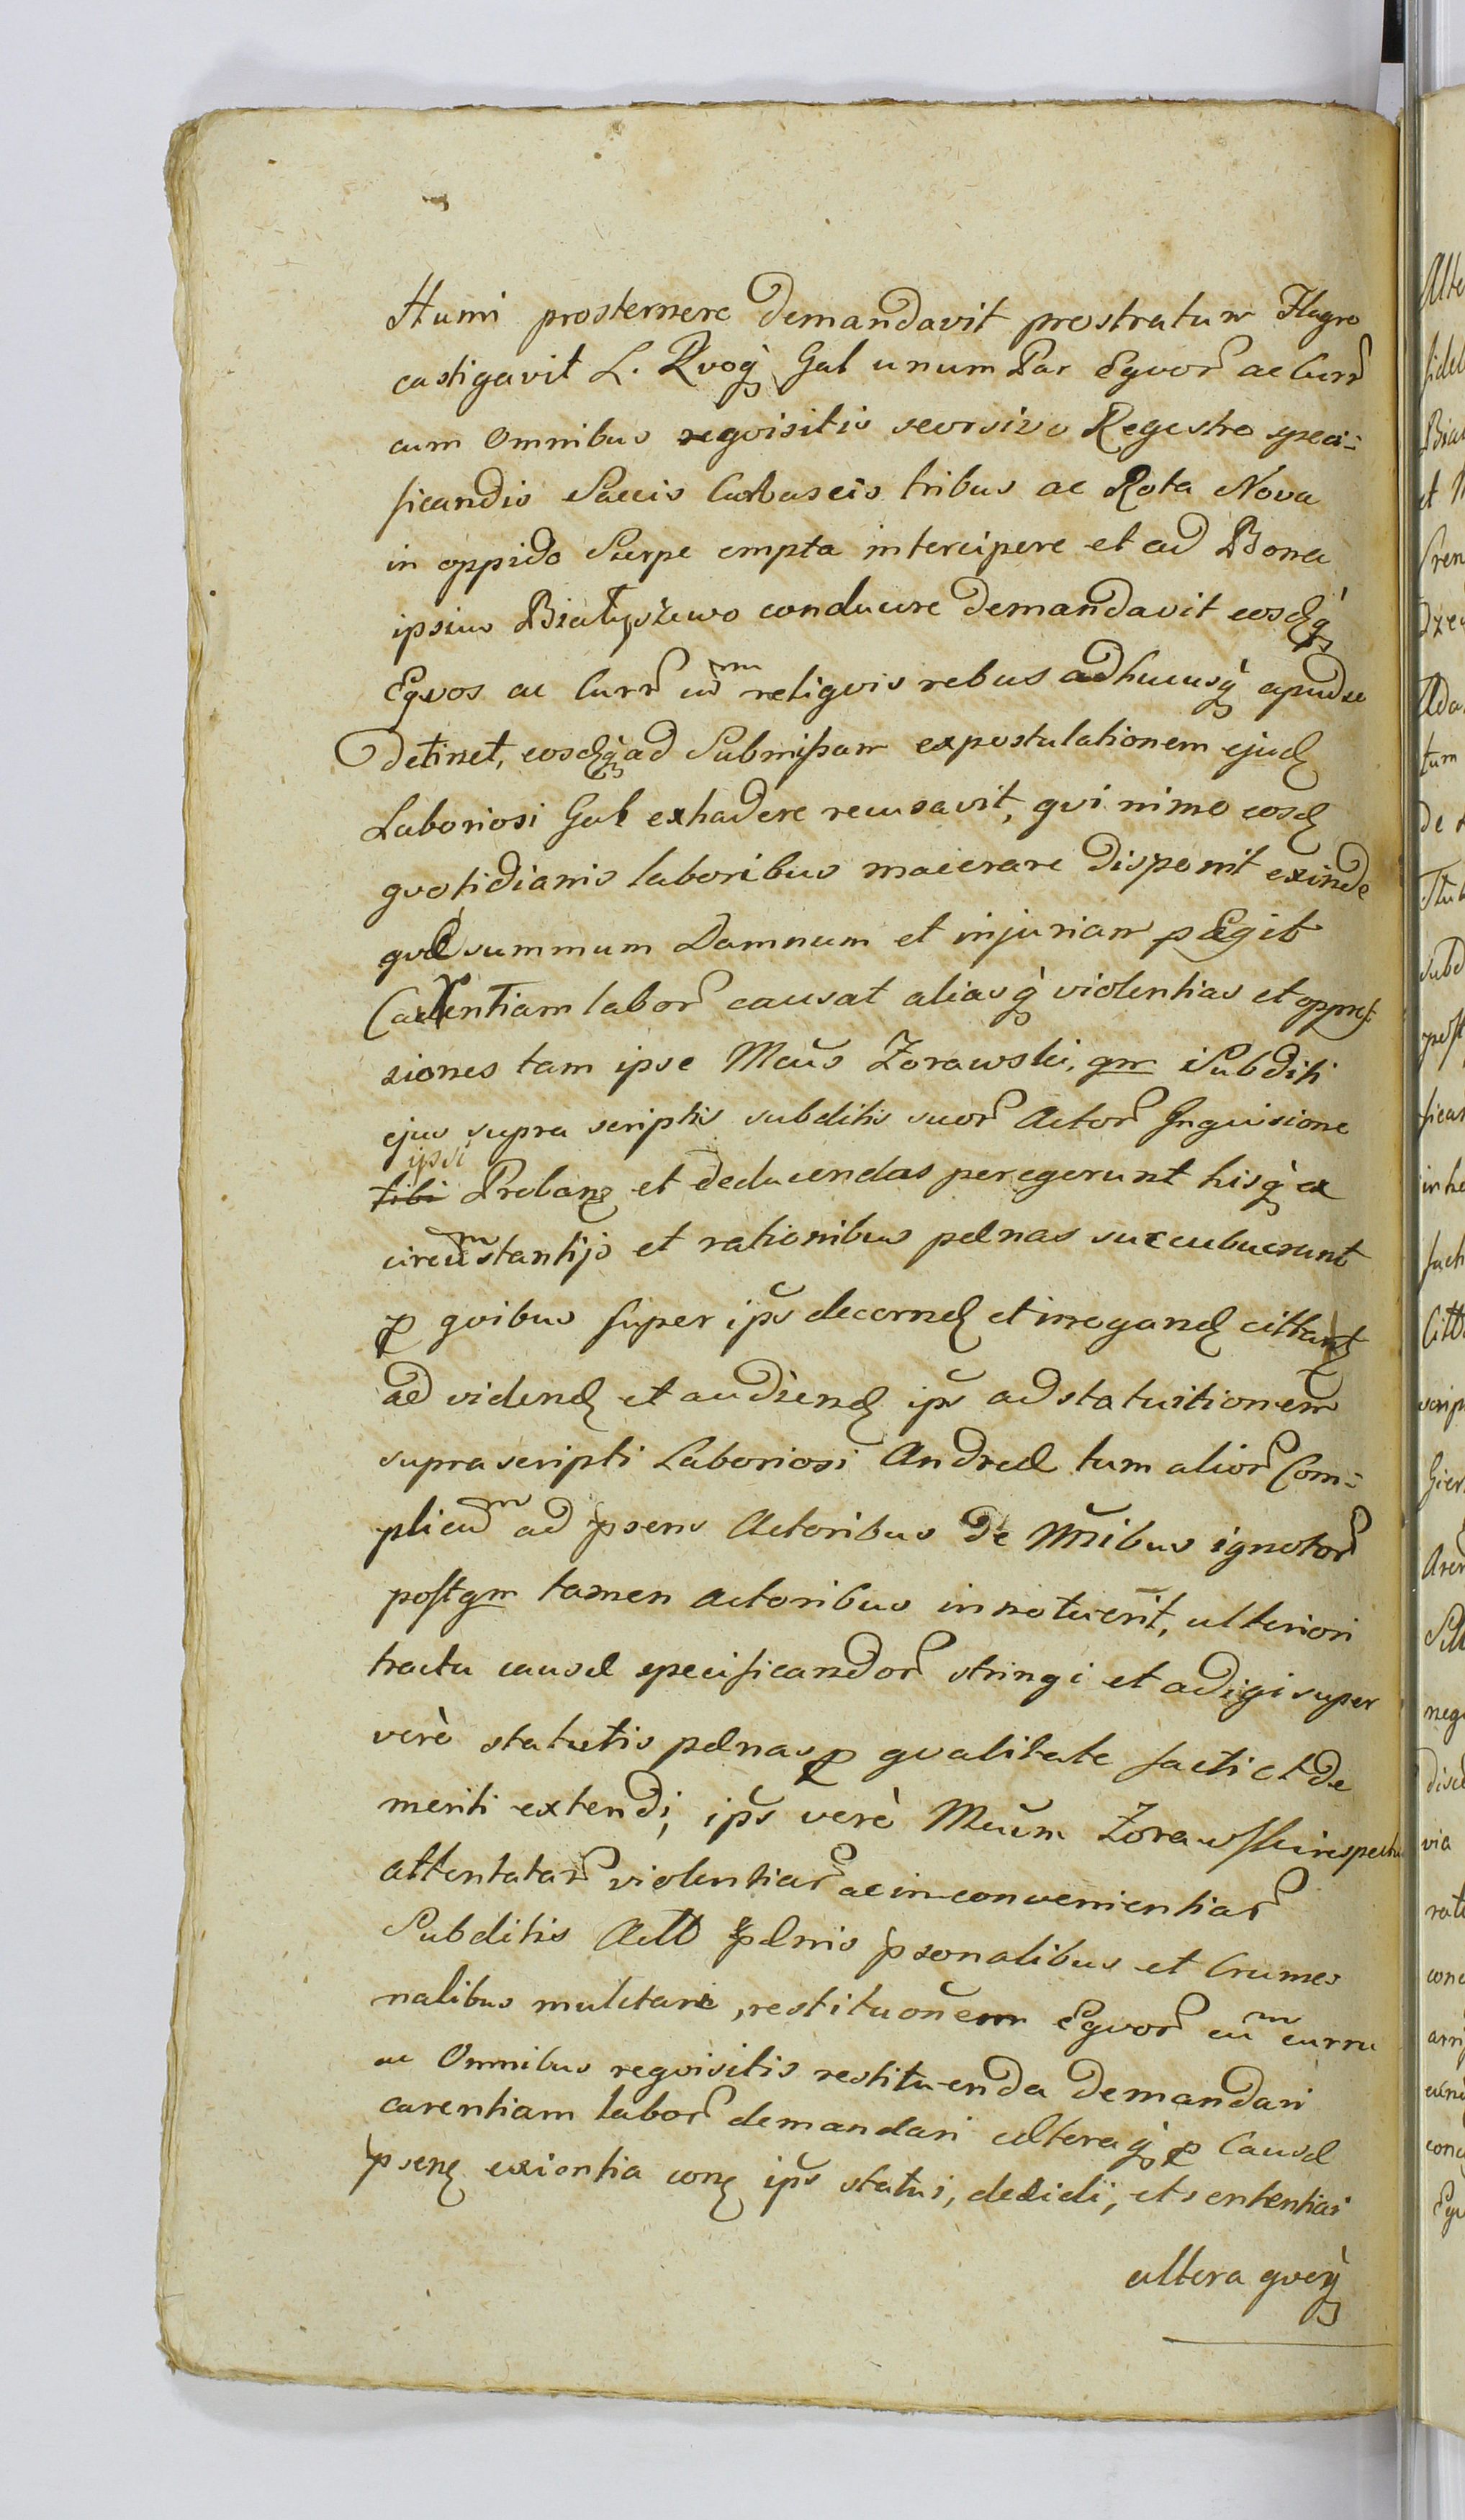 Humi prosternere demandavit prostratum Flagro
castigavit L. Rvoq̀ Gal unum Par Eqvor ac Curr
cum Omnibus reqvisitis seorsivo Regestro speci=
ficandis Saccis Carbaseis tribus ac Rota Nova
in oppido Sierpc empta intercipere et ad Bona
ipsius Białyszewo conducere demandavit eosdq̀
Eqvos ac Curr cum reliqvis rebus adhucusq̀ apud se
detinet, eosdq̀ ad Submissam expostulationem ejusd
Laboriosi Gal exhadere recusavit, qvi nimo eosd
qvotidianis laboribus macerare disponit exinde
qvæ summum Damnum et injuriam pægit
Carentiam labor causat aliasq̀ violentias et oppres:
siones tam ipse Mcus Zorawski, qm Subditi
ejus supra scriptis subditis suor Actor Inqvisione
ipsi
tibi Proban et deducendas peregerunt hisq̀ ex
circumstantijs et rationibus pænas succubuerunt
p qvibus super ips decernd et irrogand cittant
ad vidend et audiend ips ad statuitionem
supra scripti Laboriosi Andreæ tum alior Com=
plicum ad psens Actoribus de Nnibus ignotor
postqm tamen Actoribus innotuerit, ulteriori
tractu causæ specificandor stringi et adigi super
verè statutis pænas p qvalitate facti et de
meriti extendi, ips verè Mcum Zorawski respectu
attentatar violentiar ac inconvenientiar
Subditis Actt pænis psonalibus et Crume
nalibus mulctari, restituonem Eqvor cum curru
ac Omnibus reqvisitis restituenda demandari
carentiam labor demandari alteraq̀ p Causæ
psen exientia con ips statui, decidi, et sententiari
altera qveq̀